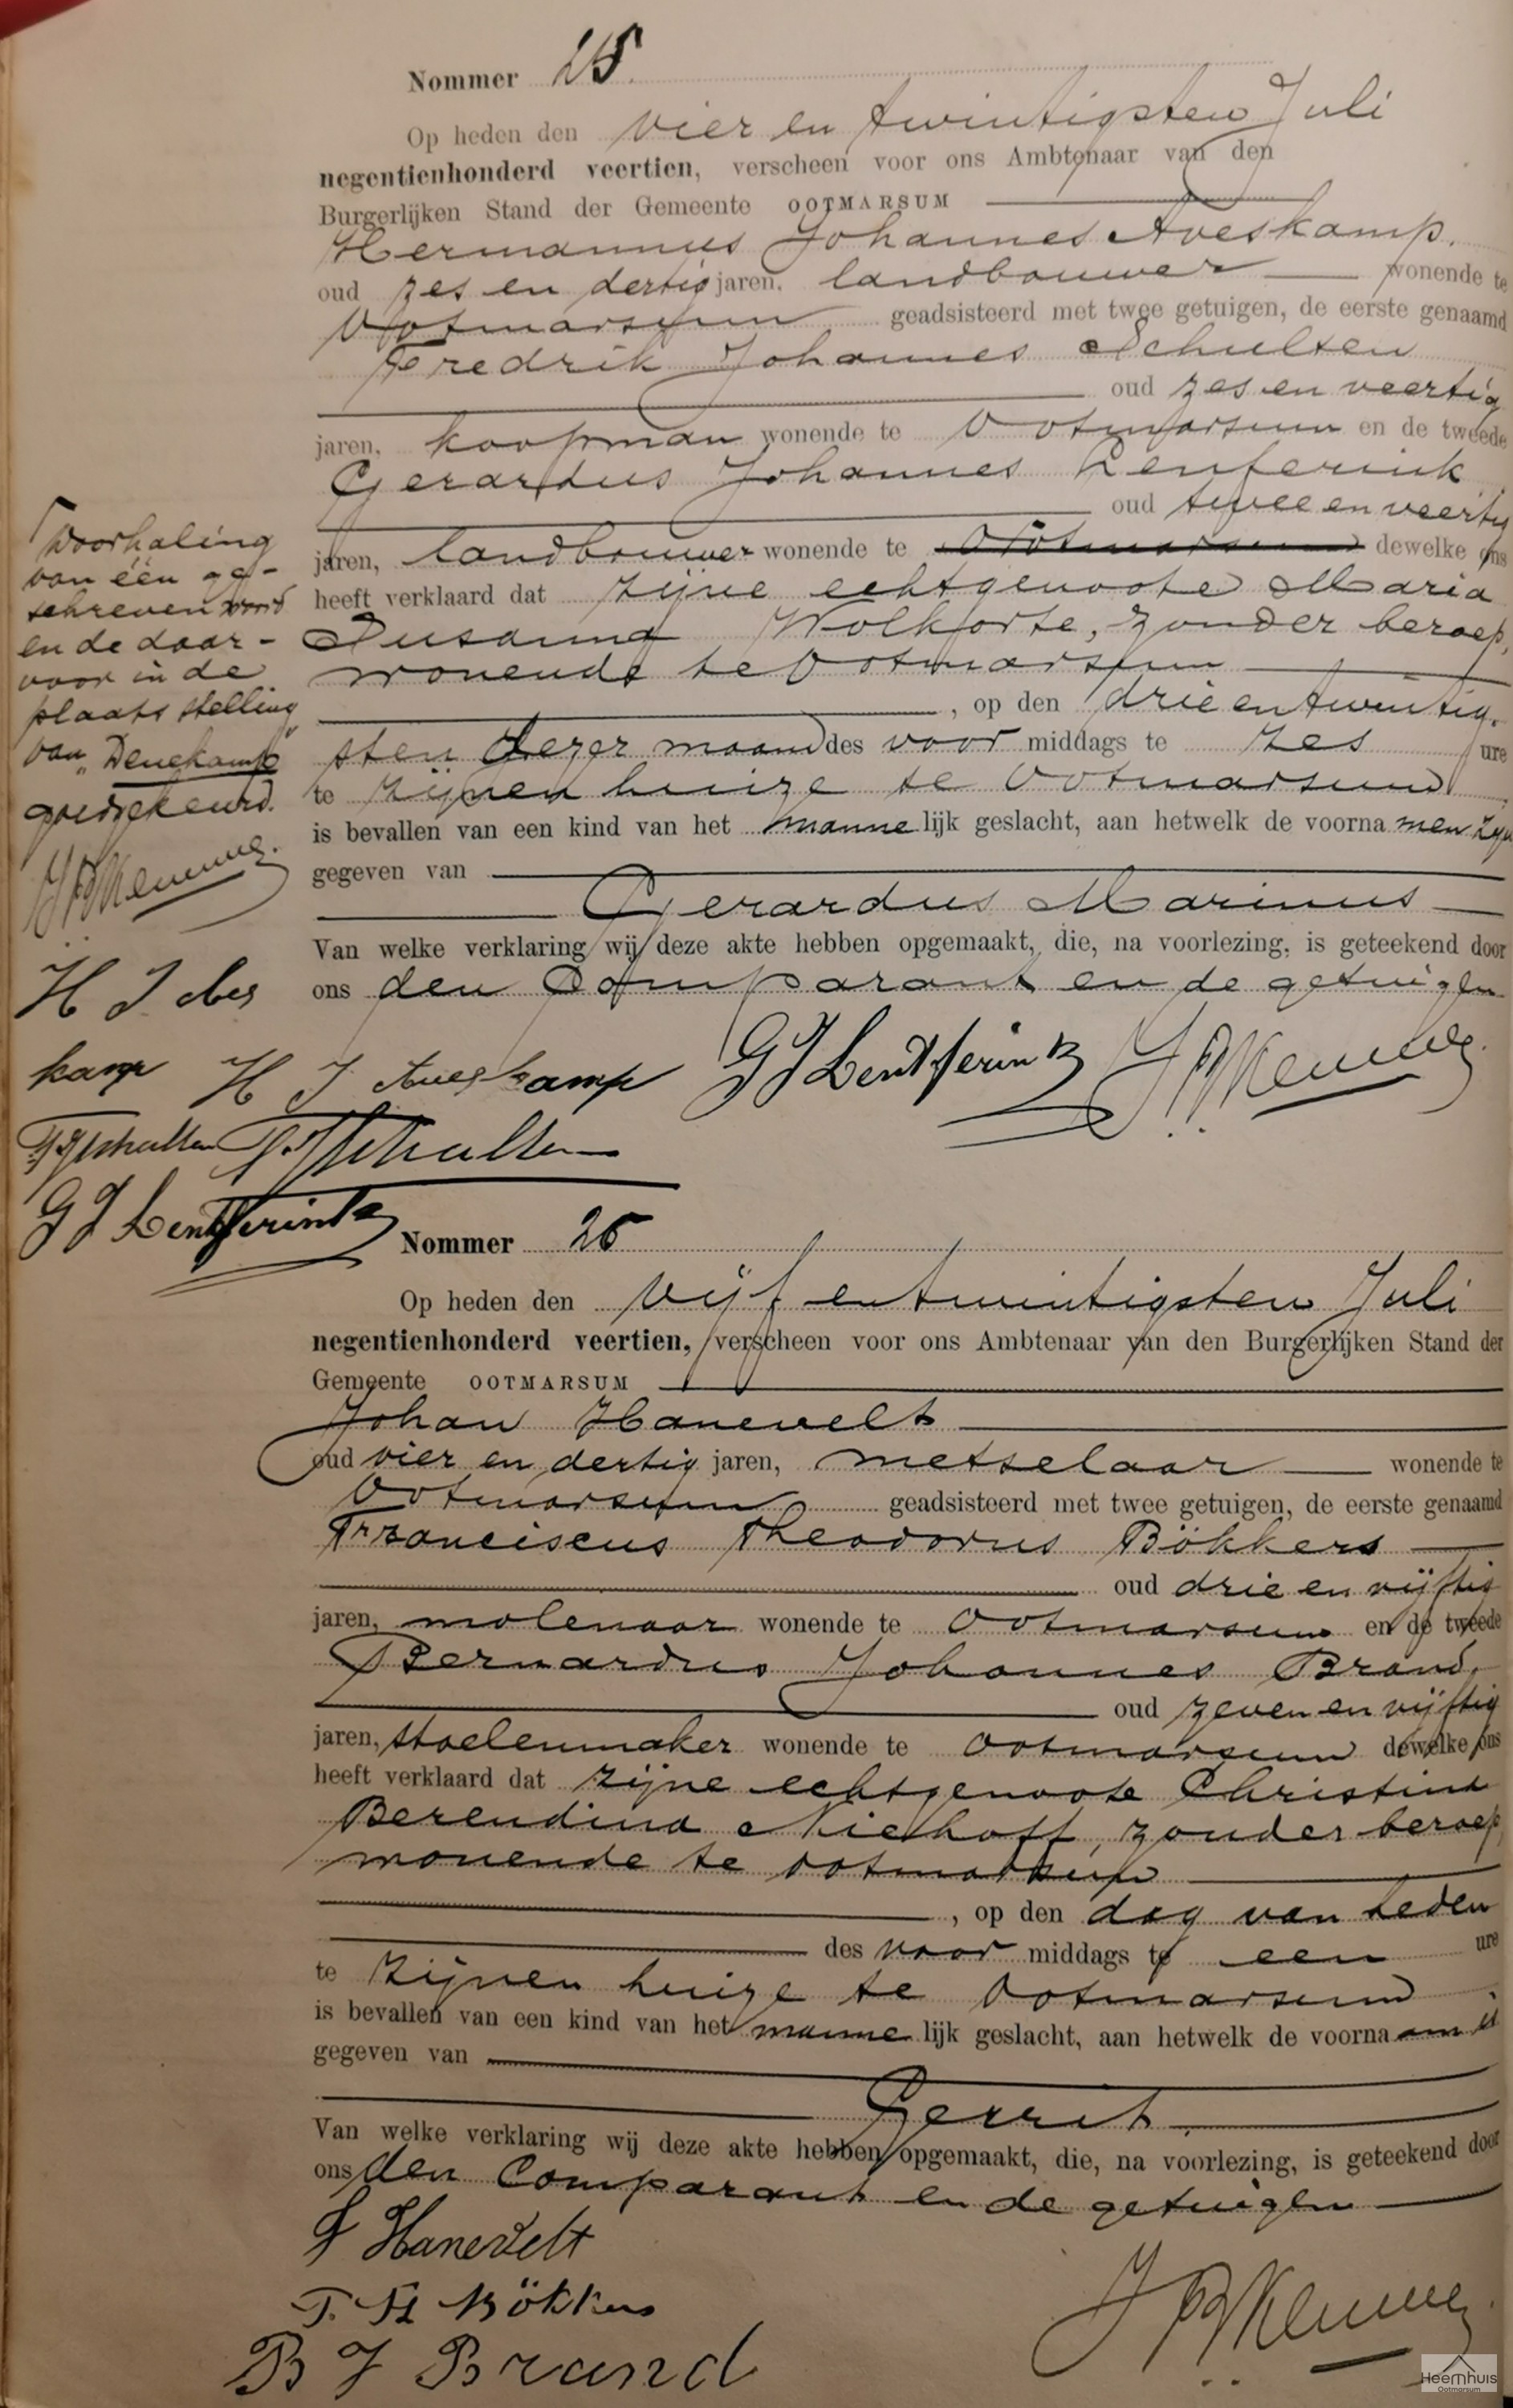 Nommer 25
Op heden den vier en twintigsten Juli
negentienhonderd veertien, verscheen voor ons Ambtenaar van den
Burgerlijken Stand der Gemeente OOTMARSUM
Hermannus Johannes Aveskamp.
oud zes en dertig jaren, landbouwer wonende te
Ootmarsum geadsisteerd met twee getuigen, de eerste genaamd
Fredrik Johannes Schulten
oud zes en veertig
jaren, koopman wonende te Ootmarsum en de tweede
Gerardus Johannes Lenferink
oud twee en veertig
jaren, landbouwer wonende te Ootmarsum dewelke ons
heeft verklaard dat zijne echtgenoote Maria
Susanna Wolkorte, zonder beroep,
wonende te Ootmarsum
, op den drie en twintig-
sten dezer maand des voor middags te zes ure
te zijnen huize te Ootmarsum
is bevallen van een kind van het manne lijk geslacht, aan hetwelk de voorna men zijn
gegeven van
Gerardus Marinus
Van welke verklaring wij deze akte hebben opgemaakt, die, na voorlezing, is geteekend door
ons den Comparant en de getuigen
Doorhaling
van één ge-
schreven woord
en de daar-
voor in de
plaats stelling
van „Denekamp"
goedgekeurd.
H J Aves
kamp
FJSchulten
G J Lentferink
H J Aveskamp
G J Lentferink
F J Schulten
Nommer 26
Op heden den vijf en twintigsten Juli
negentienhonderd veertien, verscheen voor ons Ambtenaar van den Burgerlijken Stand der
Gemeente OOTMARSUM
Johan Hanevelt
oud vier en dertig jaren, metselaar wonende te
Ootmarsum geadsisteerd met twee getuigen, de eerste genaamd
Franciscus Theodorus Bökkers
oud drie en vijftig
jaren, molenaar wonende te Ootmarsum en de tweede
Bernardus Johannes Brand,
oud zeven en vijftig
jaren, stoelenmaker wonende te Ootmarsum dewelke ons
heeft verklaard dat zijne echtgenoote Christina
Berendina Niehoff, zonder beroep,
wonende te Ootmarsum
, op den dag van heden
des voor middags te een ure
te zijnen huize te Ootmarsum
is bevallen van een kind van het manne lijk geslacht, aan hetwelk de voorna am is
gegeven van
Gerrit
Van welke verklaring wij deze akte hebben opgemaakt, die, na voorlezing, is geteekend door
ons den Comparant en de getuigen
J Hanevelt
Bökkers
B J Brand
Heemhuis
Ootmarsum